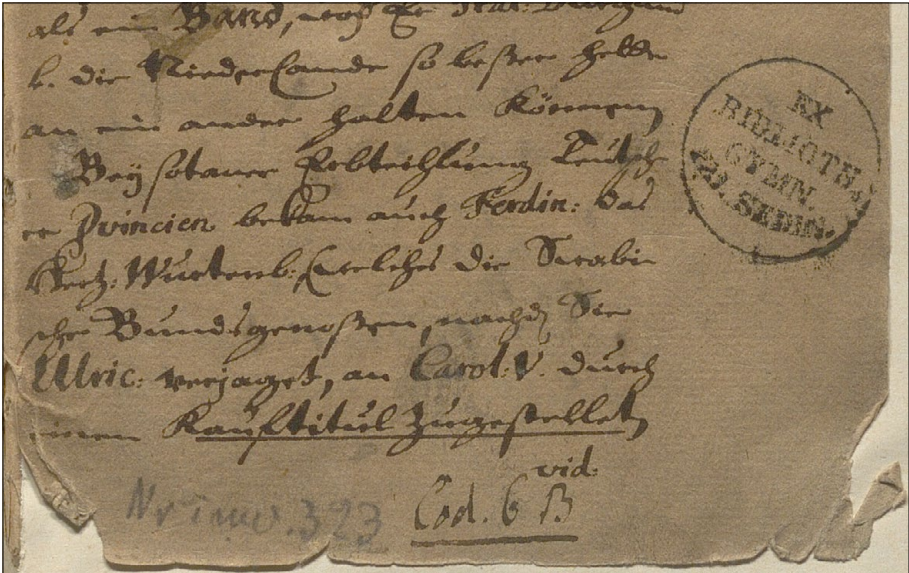 als ein Band, 
b. die Niederlande so beßer
an ein ander halten können
Bey sotaner Erbtheilung Teutsch-
er Provincien bekam auch Ferdin: das
Hertz: Wurtenb: welches die Swabi-
sche Bundsgenoßen, nachdem Sie
Ulric: verjaget, an Carol: V. durch
einen Kauftitul zugestellet
vid.
Cod. 6 B
323
EX
BIBLIOTH.
GYMN.
SEDIN.